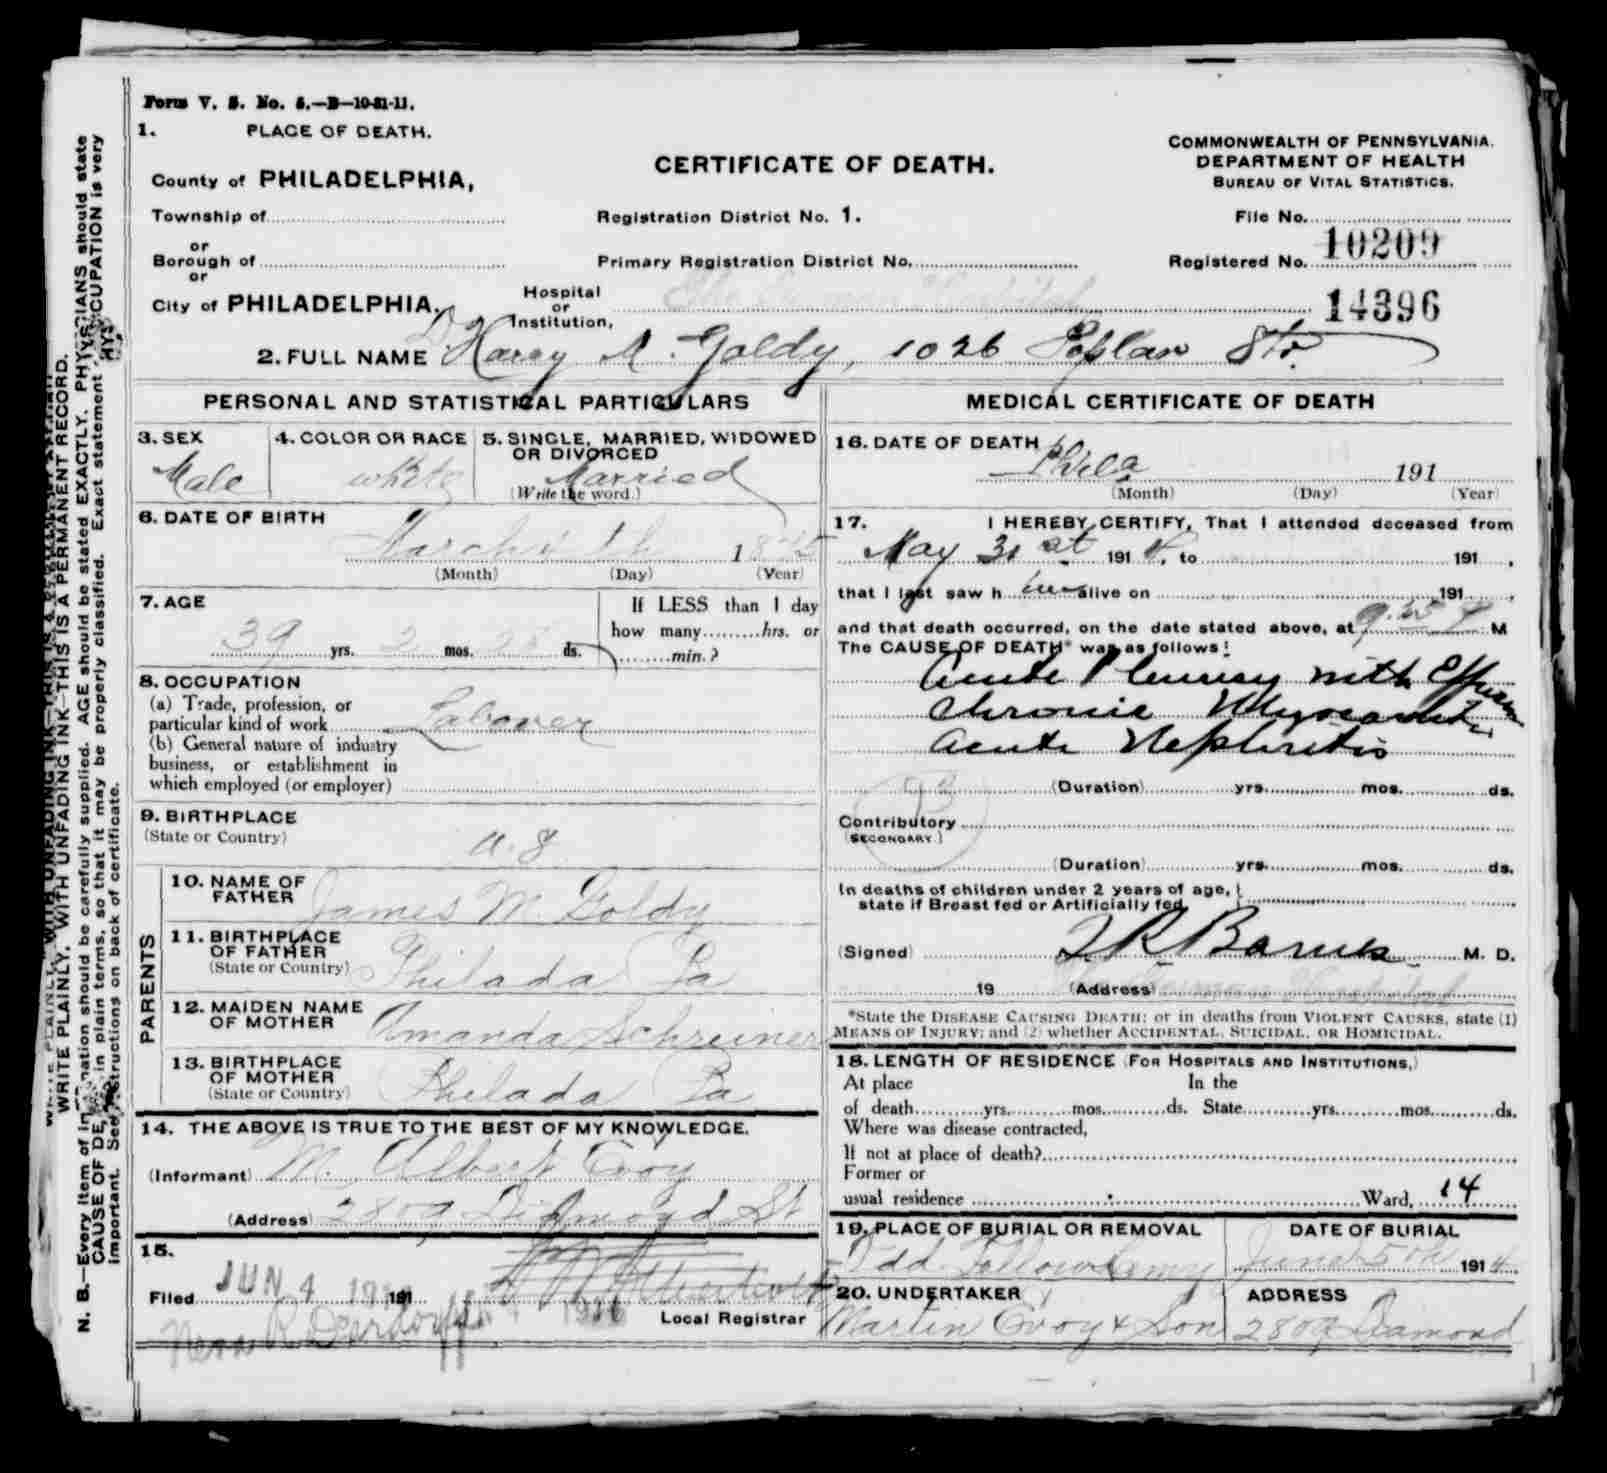 Form V. S. No. 5.—B—10-31-11.
1. PLACE OF DEATH.
County of PHILADELPHIA,
Township of
or
Borough of
or
City of PHILADELPHIA.
CERTIFICATE OF DEATH.
Registration District No. 1.
Primary Registration District No.
Hospital or Institution, The German Hospital
COMMONWEALTH OF PENNSYLVANIA.
DEPARTMENT OF HEALTH
BUREAU OF VITAL STATISTICS.
File No.
Registered No. 10209
14396
2. FULL NAME Harry M. Goldy, 1026 Poplar Str
PERSONAL AND STATISTICAL PARTICULARS
3. SEX
Male
4. COLOR OR RACE
white
5. SINGLE, MARRIED, WIDOWED
OR DIVORCED
Married
(Write the word.)
6. DATE OF BIRTH
March
(Month) (Day) (Year)
7. AGE
39 yrs. 2 mos. ds.
If LESS than 1 day
how many hrs. or
min.?
8. OCCUPATION
(a) Trade, profession, or
particular kind of work Laborer
(b) General nature of industry
business, or establishment in
which employed (or employer)
9. BIRTHPLACE
(State or Country)
PARENTS
10. NAME OF
FATHER James M. Goldy
11. BIRTHPLACE
OF FATHER
(State or Country) Philada Pa
12. MAIDEN NAME
OF MOTHER Amanda Schreiner
13. BIRTHPLACE
OF MOTHER
(State or Country) Philada Pa
14. THE ABOVE IS TRUE TO THE BEST OF MY KNOWLEDGE.
(Informant) M. Albert Evoy
(Address) 2809 Diamond St
15.
Filed JUN 4 191
Local Registrar
MEDICAL CERTIFICATE OF DEATH
16. DATE OF DEATH
Phila 191
(Month) (Day) (Year)
17. I HEREBY CERTIFY, That I attended deceased from
May 31st 1914, to 191 ,
that I last saw him alive on 191 ,
and that death occurred, on the date stated above, at M
The CAUSE OF DEATH* was as follows:
Acute Pleurisy with Effusion
Chronic Myocarditis
Acute Nephritis
(Duration) yrs. mos. ds.
93
Contributory
(SECONDARY.)
(Duration) yrs. mos. ds.
In deaths of children under 2 years of age,
state if Breast fed or Artificially fed
(Signed) Barnes M. D.
19 (Address) German Hospital
*State the DISEASE CAUSING DEATH; or in deaths from VIOLENT CAUSES, state (1)
MEANS OF INJURY; and (2) whether ACCIDENTAL, SUICIDAL, OR HOMICIDAL.
18. LENGTH OF RESIDENCE (FOR HOSPITALS AND INSTITUTIONS,)
At place In the
of death yrs. mos. ds. State yrs. mos. ds.
Where was disease contracted,
If not at place of death?
Former or
usual residence Ward, 14
19. PLACE OF BURIAL OR REMOVAL
Odd Fellows Cemy
DATE OF BURIAL
June 5th 1914.
20. UNDERTAKER
Martin Evoy & Son
ADDRESS
2809 Diamond
WRITE PLAINLY, WITH UNFADING INK—THIS IS A PERMANENT RECORD.
N. B.—Every item of information should be carefully supplied. AGE should be stated EXACTLY. PHYSICIANS should state
CAUSE OF DEATH in plain terms, so that it may be properly classified. Exact statement OCCUPATION is very
important. See instructions on back of certificate.